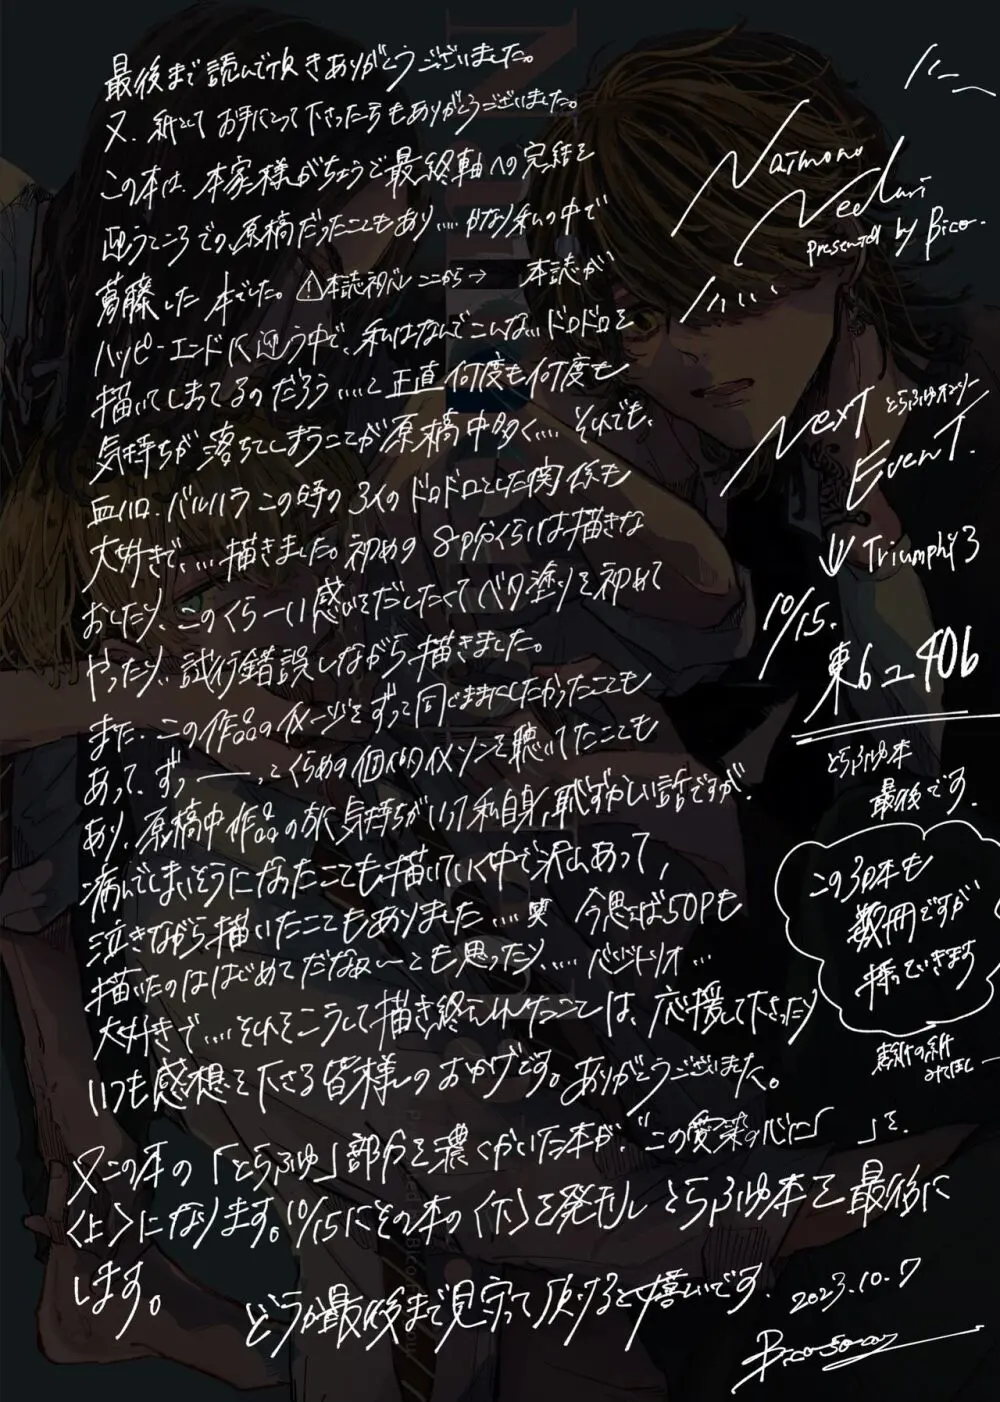 最後まで読んで頂きありがとうございました。
又、紙としてお手にとって下さった方もありがとうございました。
この本は、本家様がちょうど最終軸への完結を
迎うところでの原稿だったこともあり.....かなり私の中で
葛藤した本でした。⚠本誌ネタバレここから→ 本誌が
ハッピーエンドに迎う中で、私はなんでこんな...ドロドロを
描いてしまってるのだろう.....と正直何度も何度も
気持ちが落ちてしまうことが原稿中多く.... それでも、
血ハロ、バルハラこの時の3人のドロドロとした関係も
大好きで、...描きました。初めの8p分くらいは描きな
おしたり、このくらーい感じをだしたくてベタ塗りを初めて
やったり、試行錯誤しながら描きました。
また、この作品のイメージをずっと同じままにしたかったことも
あって、ずっ――っとくらめの個人的イメソンを聴いてたことも
あり、原稿中作品の方に気持ちがいって私自身、恥ずかしい話ですが、
病んでしまいそうになったことも描いていく中で沢山あって、
泣きながら描いたこともありました....笑 今思えば50Pも
描いたのははじめてだなぁ〜とも思ったり..... バジトリオ...
大好きで....それをこうして描き終えれたことは、応援して下さったり
いつも感想を下さる皆様のおかげです。ありがとうございました。
又この本の「とらふゆ」部分を濃くかいた本が、"この愛染め心に「 」を、
〈上〉になります。10/15にその本の〈下〉を発刊しとらふゆ本を最後に
します。
どうか最後まで見守って頂けると嬉しいです。
2023.10.7
Naimono
Nedari
presented by Bico.
Next とらふゆオンリー
Event.
↓ Triumph!3
10/15.
東6ユ40b
とらふゆ本
最後です。
この3p本も
数冊ですが
持っていきます
表紙の紙
みてほしー